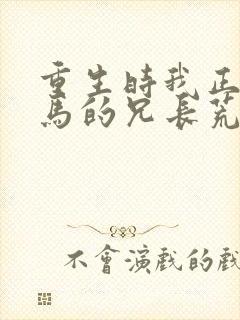 重生時我正
馬的兄長荒
不會演戲的戲